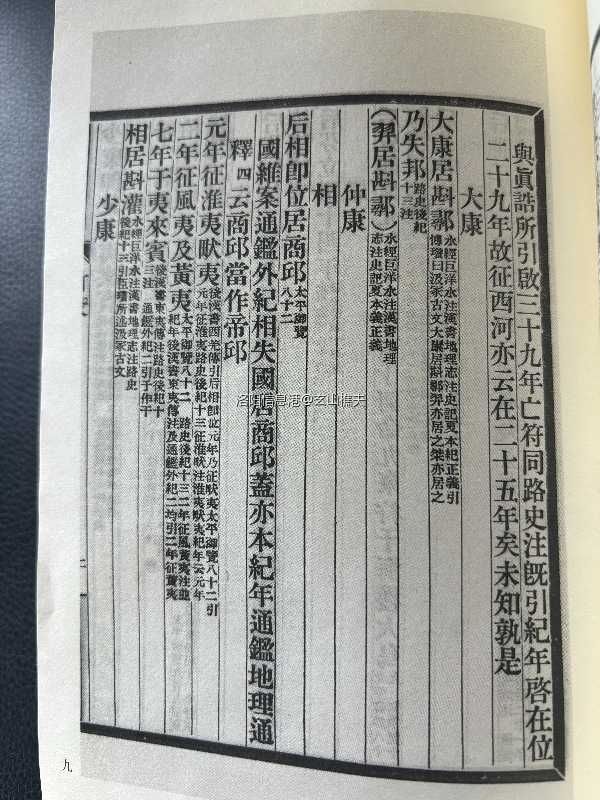 與眞誥所引啟三十九年亡符同路史注旣引紀年啓在位
二十九年故征西河亦云在二十五年矣未知孰是
大康
大康居斟鄩水經巨洋水注漢書地理志注史記夏本紀正義引
傅瓚曰汲冢古文大康居斟鄩羿亦居之桀亦居之
乃失邦路史後紀
十三注
(羿居斟鄩)水經巨洋水注漢書地理
志注史記夏本紀正義
仲康
相
后相卽位居商邱太平御覽
八十二
國維案通鑑外紀相失國居商邱蓋亦本紀年通鑑地理通
釋四云商邱當作帝邱
元年征淮夷畎夷後漢書西羌傳引后相卽位元年乃征畎夷太平御覽八十二引
元年征淮夷路史後紀十三征淮畎注淮夷畎夷紀年云元年
二年征風夷及黃夷太平御覽八十二路史後紀十三二年征風黃夷注並
紀年後漢書東夷傳注及通鑑外紀二均引二年征黃夷
七年于夷來賓後漢書東夷傳注路史後紀十
三注通鑑外紀二引于作干
相居斟灌水經巨洋水注漢書地理志注路史
後紀十三引臣瓚所述汲冢古文
少康
九
洛陽信息港@玄山樵夫